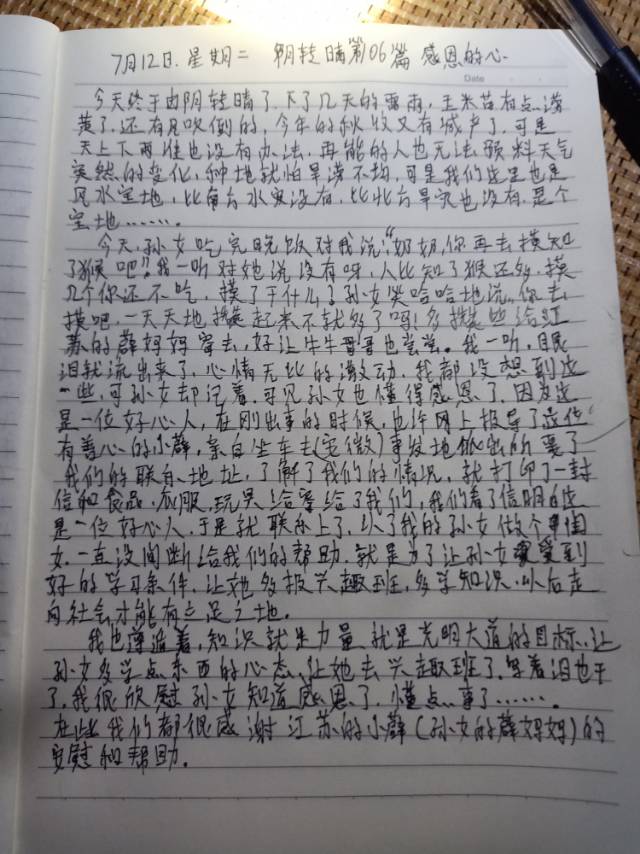 7月12日.星期二 阴转晴第06篇 感恩的心
Date
今天终于由阴转晴了.下了几天的雷雨,玉米苗有点
黄了.还有风吹倒的,今年的秋收又有减产了.可是
天上下雨谁也没有办法,再能的人也无法预料天气
突然的变化,种地就怕旱涝不均,可是我们这里也是
风水宝地,比南方水灾没有,比北方旱灾也没有.是个
宝地……
今天,孙女吃完晚饭对我说:"奶奶,你再去摸知
了猴吧?"我一听对她说没有呀,人比知了猴还多.摸
几个你还不吃,摸了干什么?孙女笑哈哈地说.你去
摸吧,一天天地攒起来不就多了吗!多攒些给江
苏的薛妈妈寄去,好让牛牛哥哥也尝尝.我一听,眼
泪就流出来了.心情无比的激动,我都没想到这
一些,可孙女却记着.可见孙女也懂得感恩了.因为这
是一位好心人,在刚出事的时候,也许网上报导了这位
有善心的小薛,亲自坐车去(安微)事发地派出所要了
我们的联系地址,了解了我们的情况,就打印了一封
信和食品.衣服.玩具给寄给了我们,我们看了信明白这
是一位好心人.于是就联系上了.认了我的孙女做个干闺
女.一直没间断给我们的帮助.就是为了让孙女受到
好的学习条件,让她多报兴趣班,多学知识.以后走
向社会才能有立足之地.
我也遵循着,知识就是力量就是光明大道的目标.让
孙女多学点东西的心态.让她去兴趣班了.早着泪也干
了.我很欣慰孙女知道感恩了.懂点事了……
在此我们都很感谢江苏的小薛(孙女的薛妈妈)的
安慰和帮助.